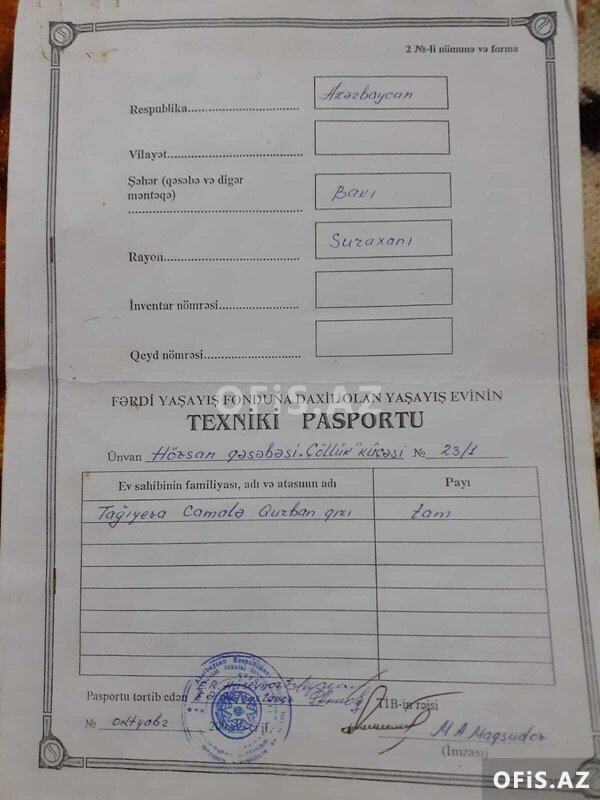 2 №-li nümunə və forma
Respublika.............................. Azərbaycan
Vilayət...................................
Şəhər (qəsəbə və digər
məntəqə) Bakı
Rayon.................................... Suraxanı
İnventar nömrəsi......................
Qeyd nömrəsi..........................
OFiS.AZ
FƏRDİ YAŞAYIŞ FONDUNA DAXİL OLAN YAŞAYIŞ EVİNİN
TEXNİKİ PASPORTU
Ünvan Hövsan qəsəbəsi "Çöllük" küçəsi № 23/1
Ev sahibinin familiyası, adı və atasının adı Payı
Tağıyeva Camalə Qurban qızı tam
Azərbaycan Respublikası
Pasportu tərtib edən TİB-in rəisi
№ oktyabr
M A Maqsudov
(İmzası)
OFiS.AZ